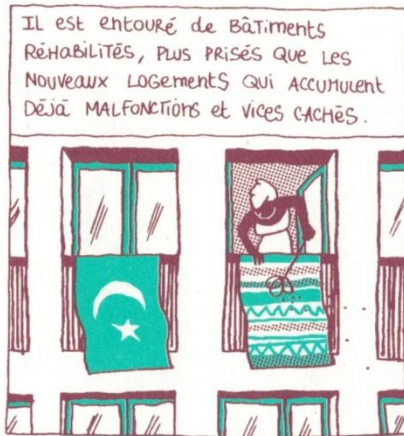 IL EST ENTOURÉ DE BÂTIMENTS
RÉHABILITÉS, PLUS PRISÉS QUE LES
NOUVEAUX LOGEMENTS QUI ACCUMULENT
DÉJÀ MALFONCTIONS ET VICES CACHÉS.